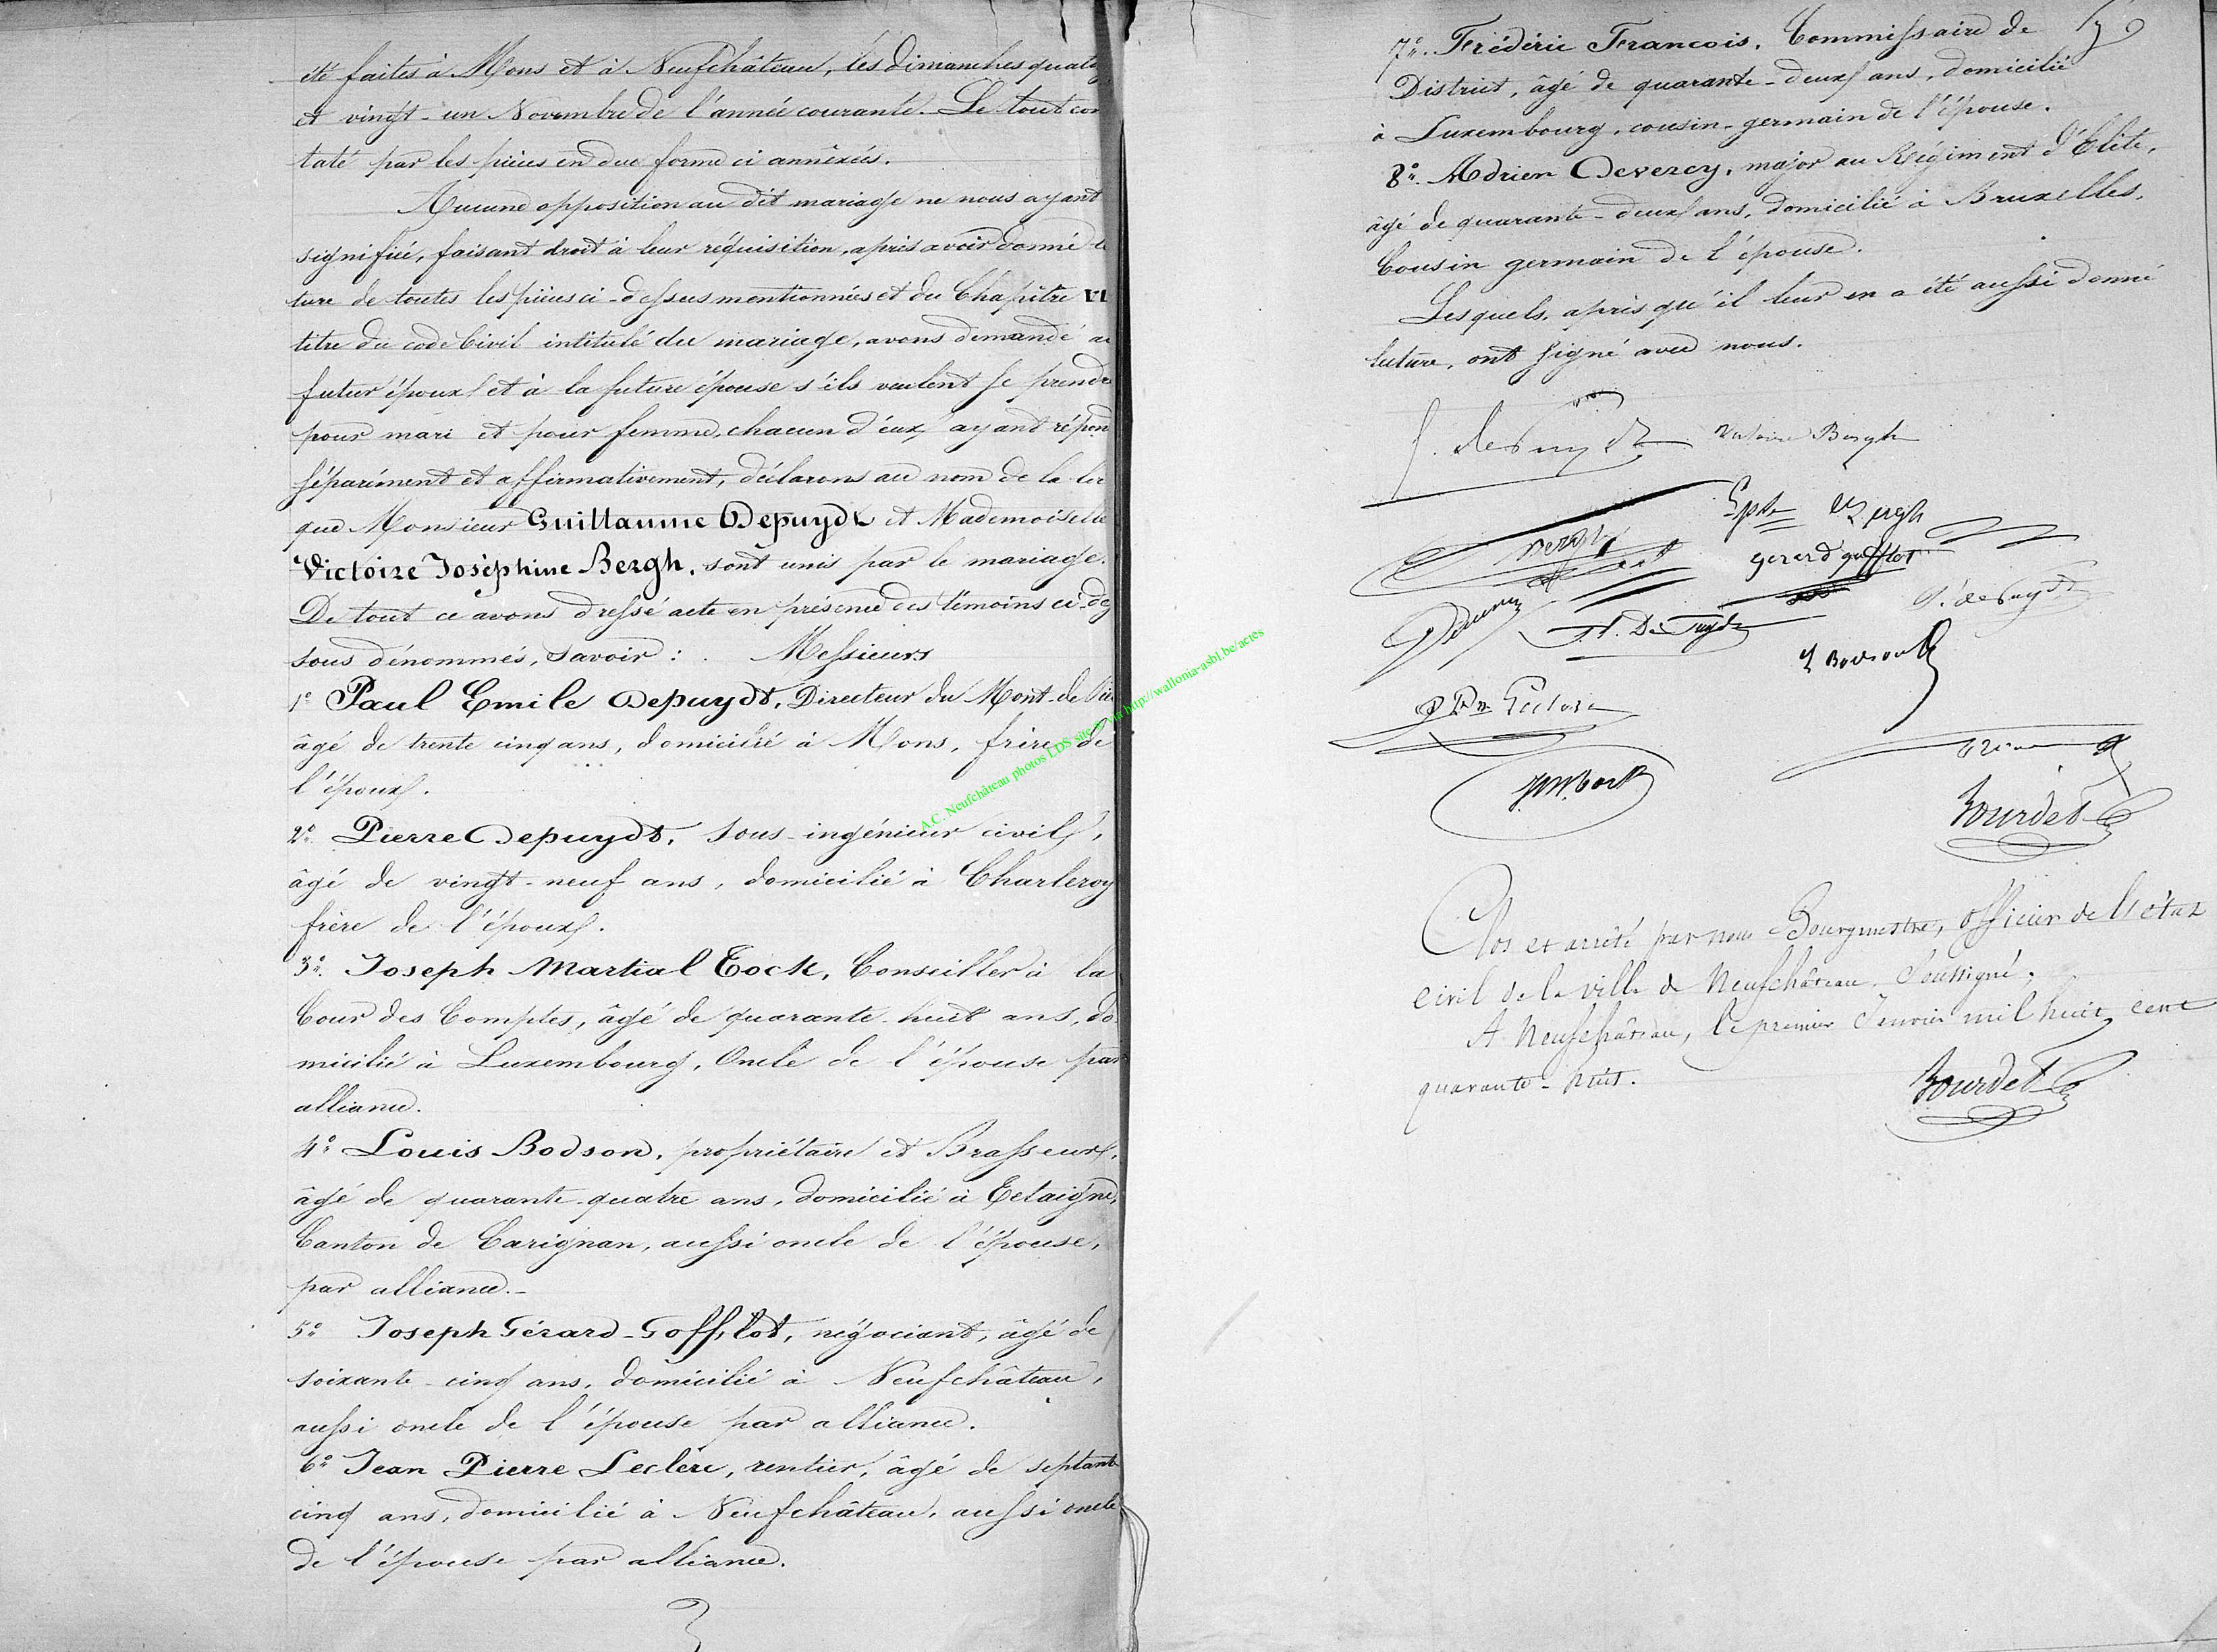 été faites à Mons et à Neufchâteau, les dimanches quato
et vingt-un Novembre de l'année courante. Le tout con
taté par les pièces en due forme ci annexées.
Aucune opposition au dit mariage ne nous ayant
signifiée, faisant droit à leur réquisition, après avoir donné le
ture de toutes les pièces ci-dessus mentionnées et du Chapitre VI
titre du code Civil intitulé du mariage, avons demandé au
futur époux et à la future épouse s'ils veulent se prendre
pour mari et pour femme, chacun d'eux ayant répon
séparément et affirmativement, déclarons au nom de la loi
que Monsieur Guillaume Depuydt et Mademoiselle
Victoire Joséphine Bergh, sont unis par le mariage.
De tout ce avons dressé acte en présence des témoins ci-des
sous dénommés, Savoir : Messieurs
1° Paul Emile Depuydt, Directeur du Mont-de-Pié
âgé de trente cinq ans, domicilié à Mons, frère de
l'époux.
2° Pierre Depuydt, Sous-ingénieur civil,
âgé de vingt-neuf ans, domicilié à Charleroy
frère de l'époux.
3° Joseph Martial Tock, Conseiller à la
Cour des Comptes, âgé de quarante-huit ans, do-
micilié à Luxembourg, Oncle de l'épouse par
alliance.
4° Louis Bodson, propriétaire et Brasseur,
âgé de quarante-quatre ans, domicilié à Tetaigne,
Canton de Carignan, aussi oncle de l'épouse,
par alliance.-
5° Joseph Gérard-Gofflot, négociant, âgé de
soixante-cinq ans, domicilié à Neufchâteau,
aussi oncle de l'épouse par alliance.
6° Jean Pierre Leclère, rentier, âgé de septante
cinq ans, domicilié à Neufchâteau, aussi oncle
de l'épouse par alliance.
A.C. Neufchâteau photos LDS site via http://wallonia-asbl.be/actes
7° Frédéric François, Commissaire de
District, âgé de quarante-deux ans, domicilié
à Luxembourg, cousin-germain de l'épouse.
8° Adrien Devercy, major au Régiment d'Elite,
âgé de quarante-deux ans, domicilié à Bruxelles,
Cousin germain de l'épouse.
Lesquels, après qu'il leur en a été aussi donné
lecture, ont signé avec nous.
depuydt Victoire Bergh
Bergh
Bergh
gerard gofflot
De Puydt
depuydt
Bodson
Tock
Bourdet
Clos et arrêté par nous Bourgmestre, Officier de l'état
civil de la ville de Neufchâteau, Soussigné,
A Neufchâteau, le premier Janvier mil huit cent
quarante-huit.
Bourdet